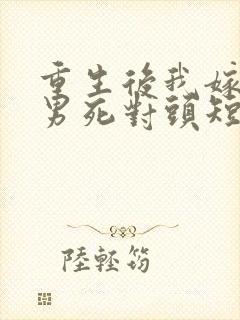 重生後我嫁
男死對頭短
陸輕筠